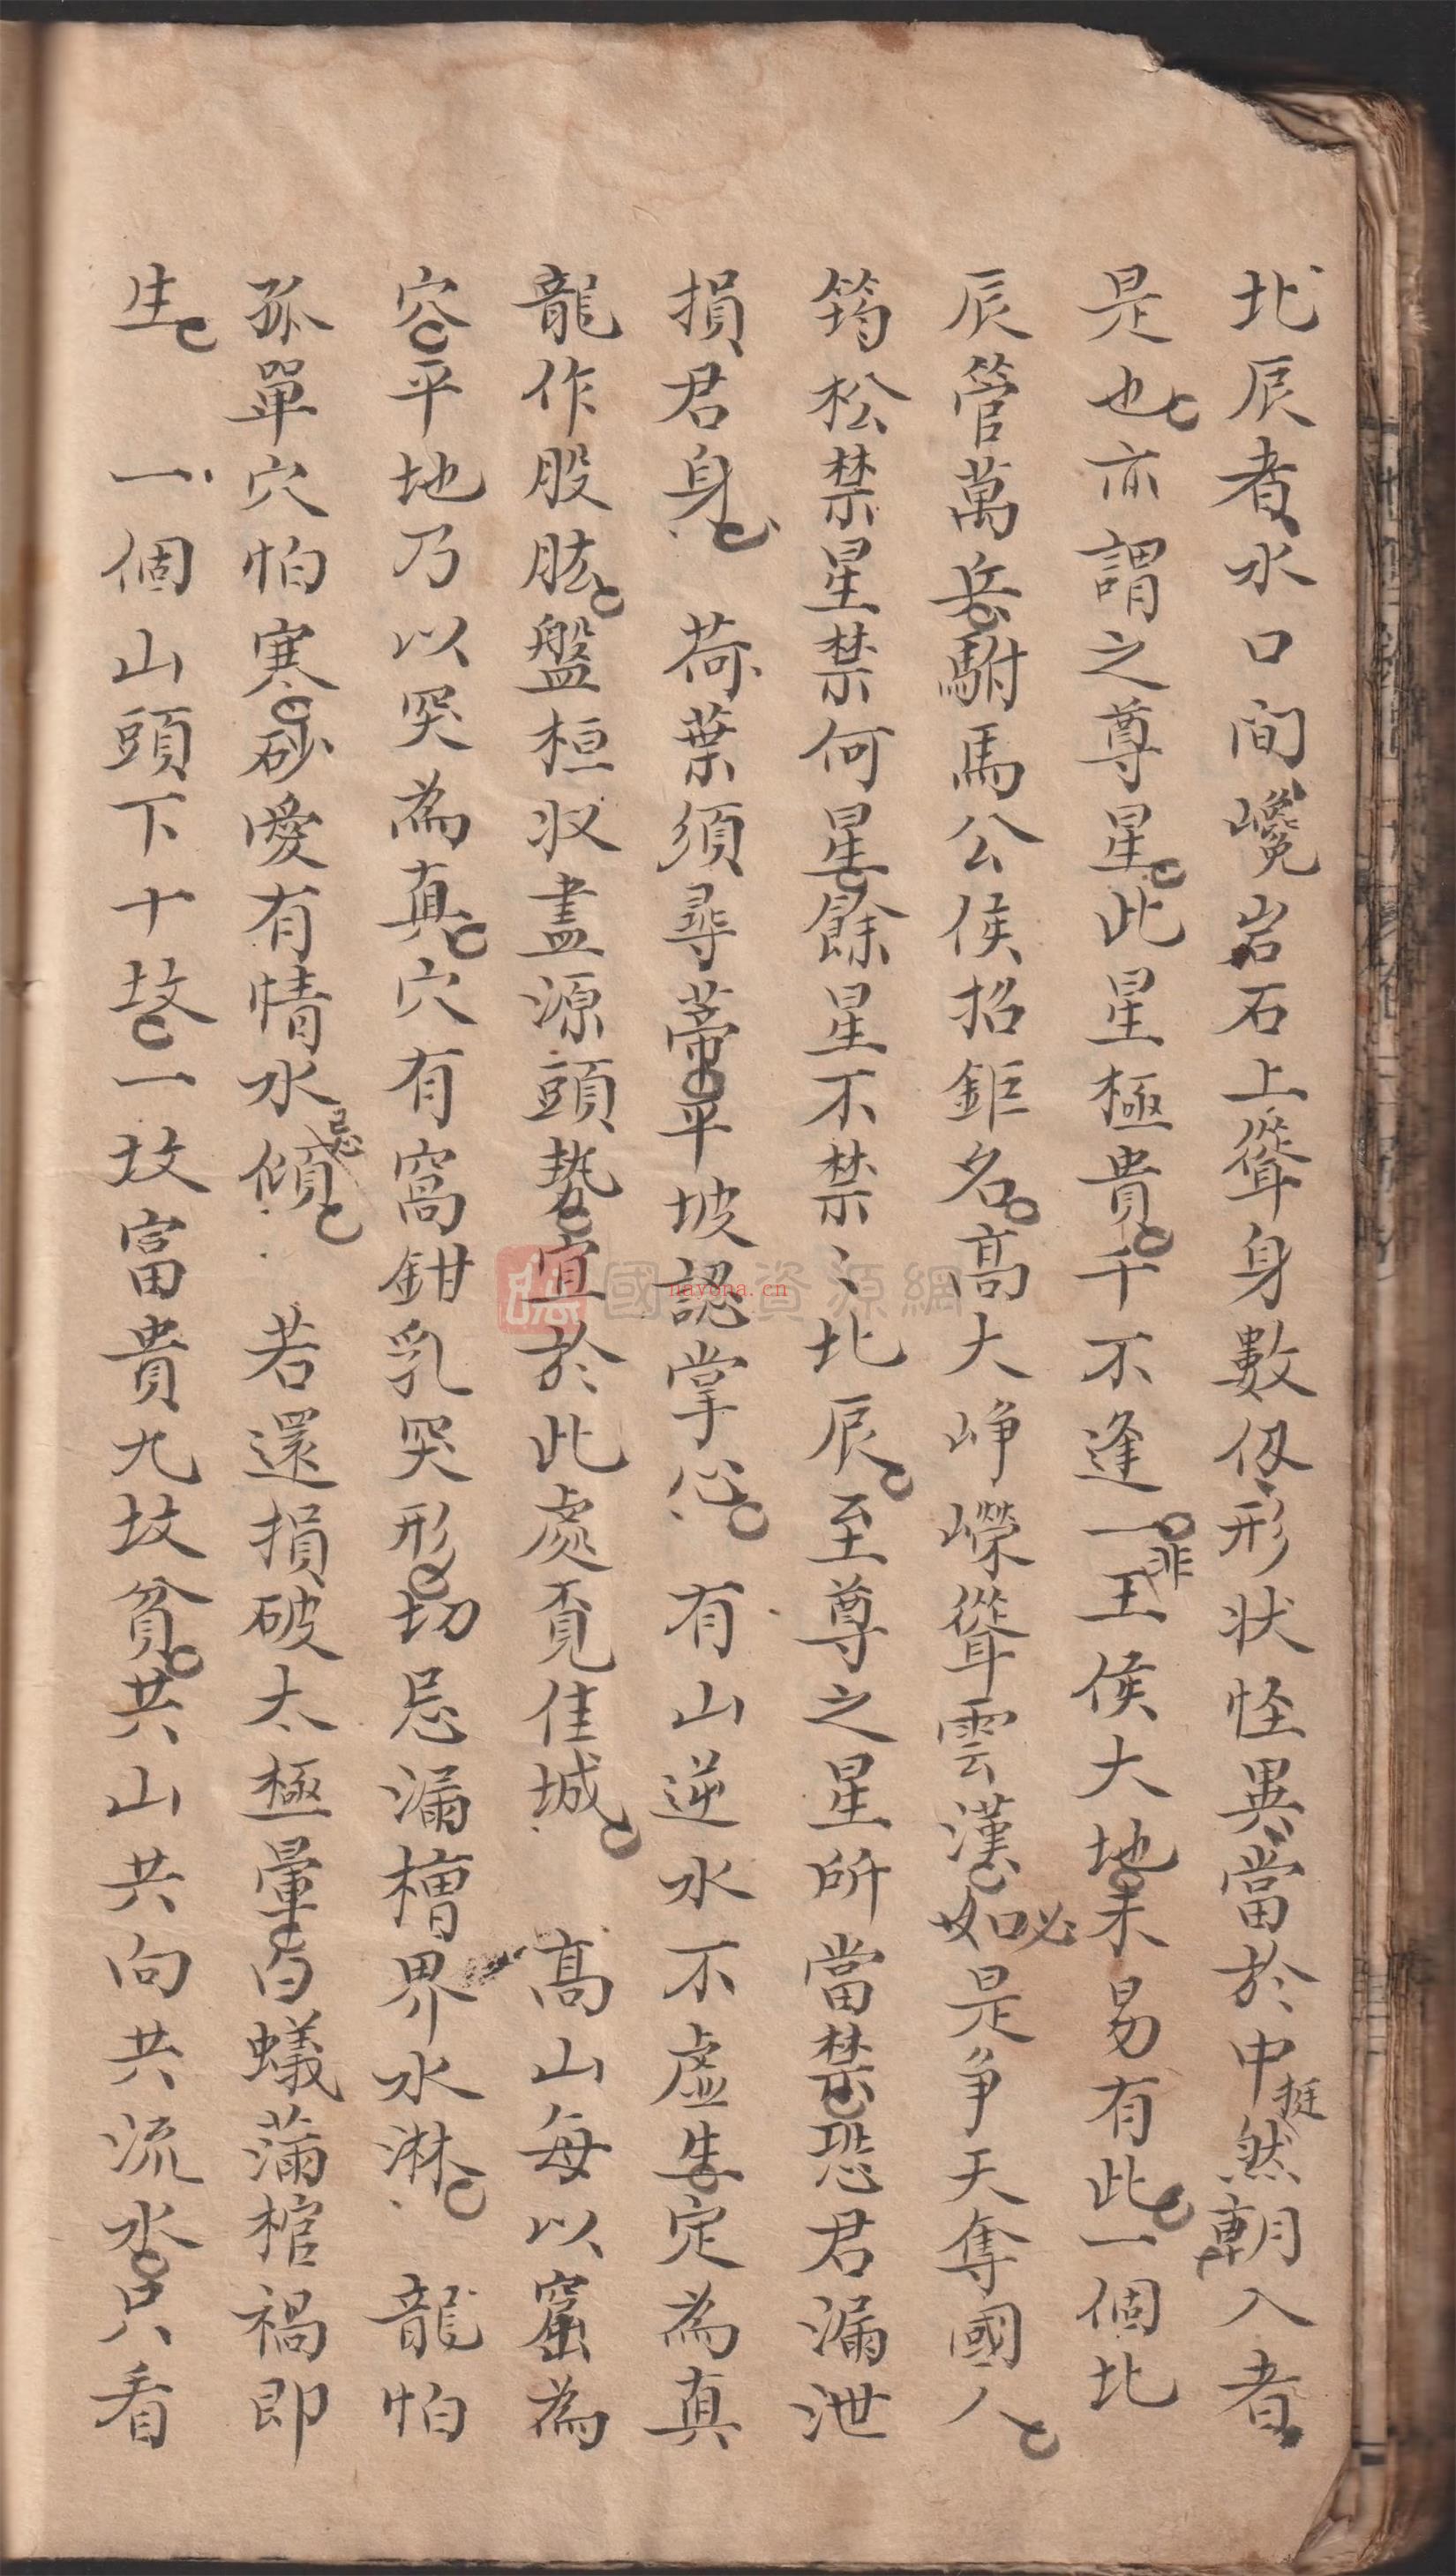 北辰者水口间巉岩石上聳身數仭形状怪異當於中挺然朝入者
是也亦謂之尊星此星極貴千不逢一非王侯大地未易有此一個北
辰管萬兵駙馬公侯招鉅名高大崢嶸聳雲漢如必是争天奪國人
筠松禁星禁何星餘星不禁〻北辰至尊之星所當禁恐君漏泄
損君身 荷葉須尋蒂平坡認掌心 有山逆水不虛生定為真
龍作股肱盤桓収盡源頭勢宜於此處覔佳城 高山每以窟為
容平地乃以突為真穴有窩鉗乳突形切忌漏槽界水淋 龍怕
孤單穴怕寒砂愛有情水忌傾 若還損破太極暈白蟻蒲棺禍即
生 一個山頭下十坟一坟富貴九坟貧共山共向共流水只看
國 資源網
nayona.cn